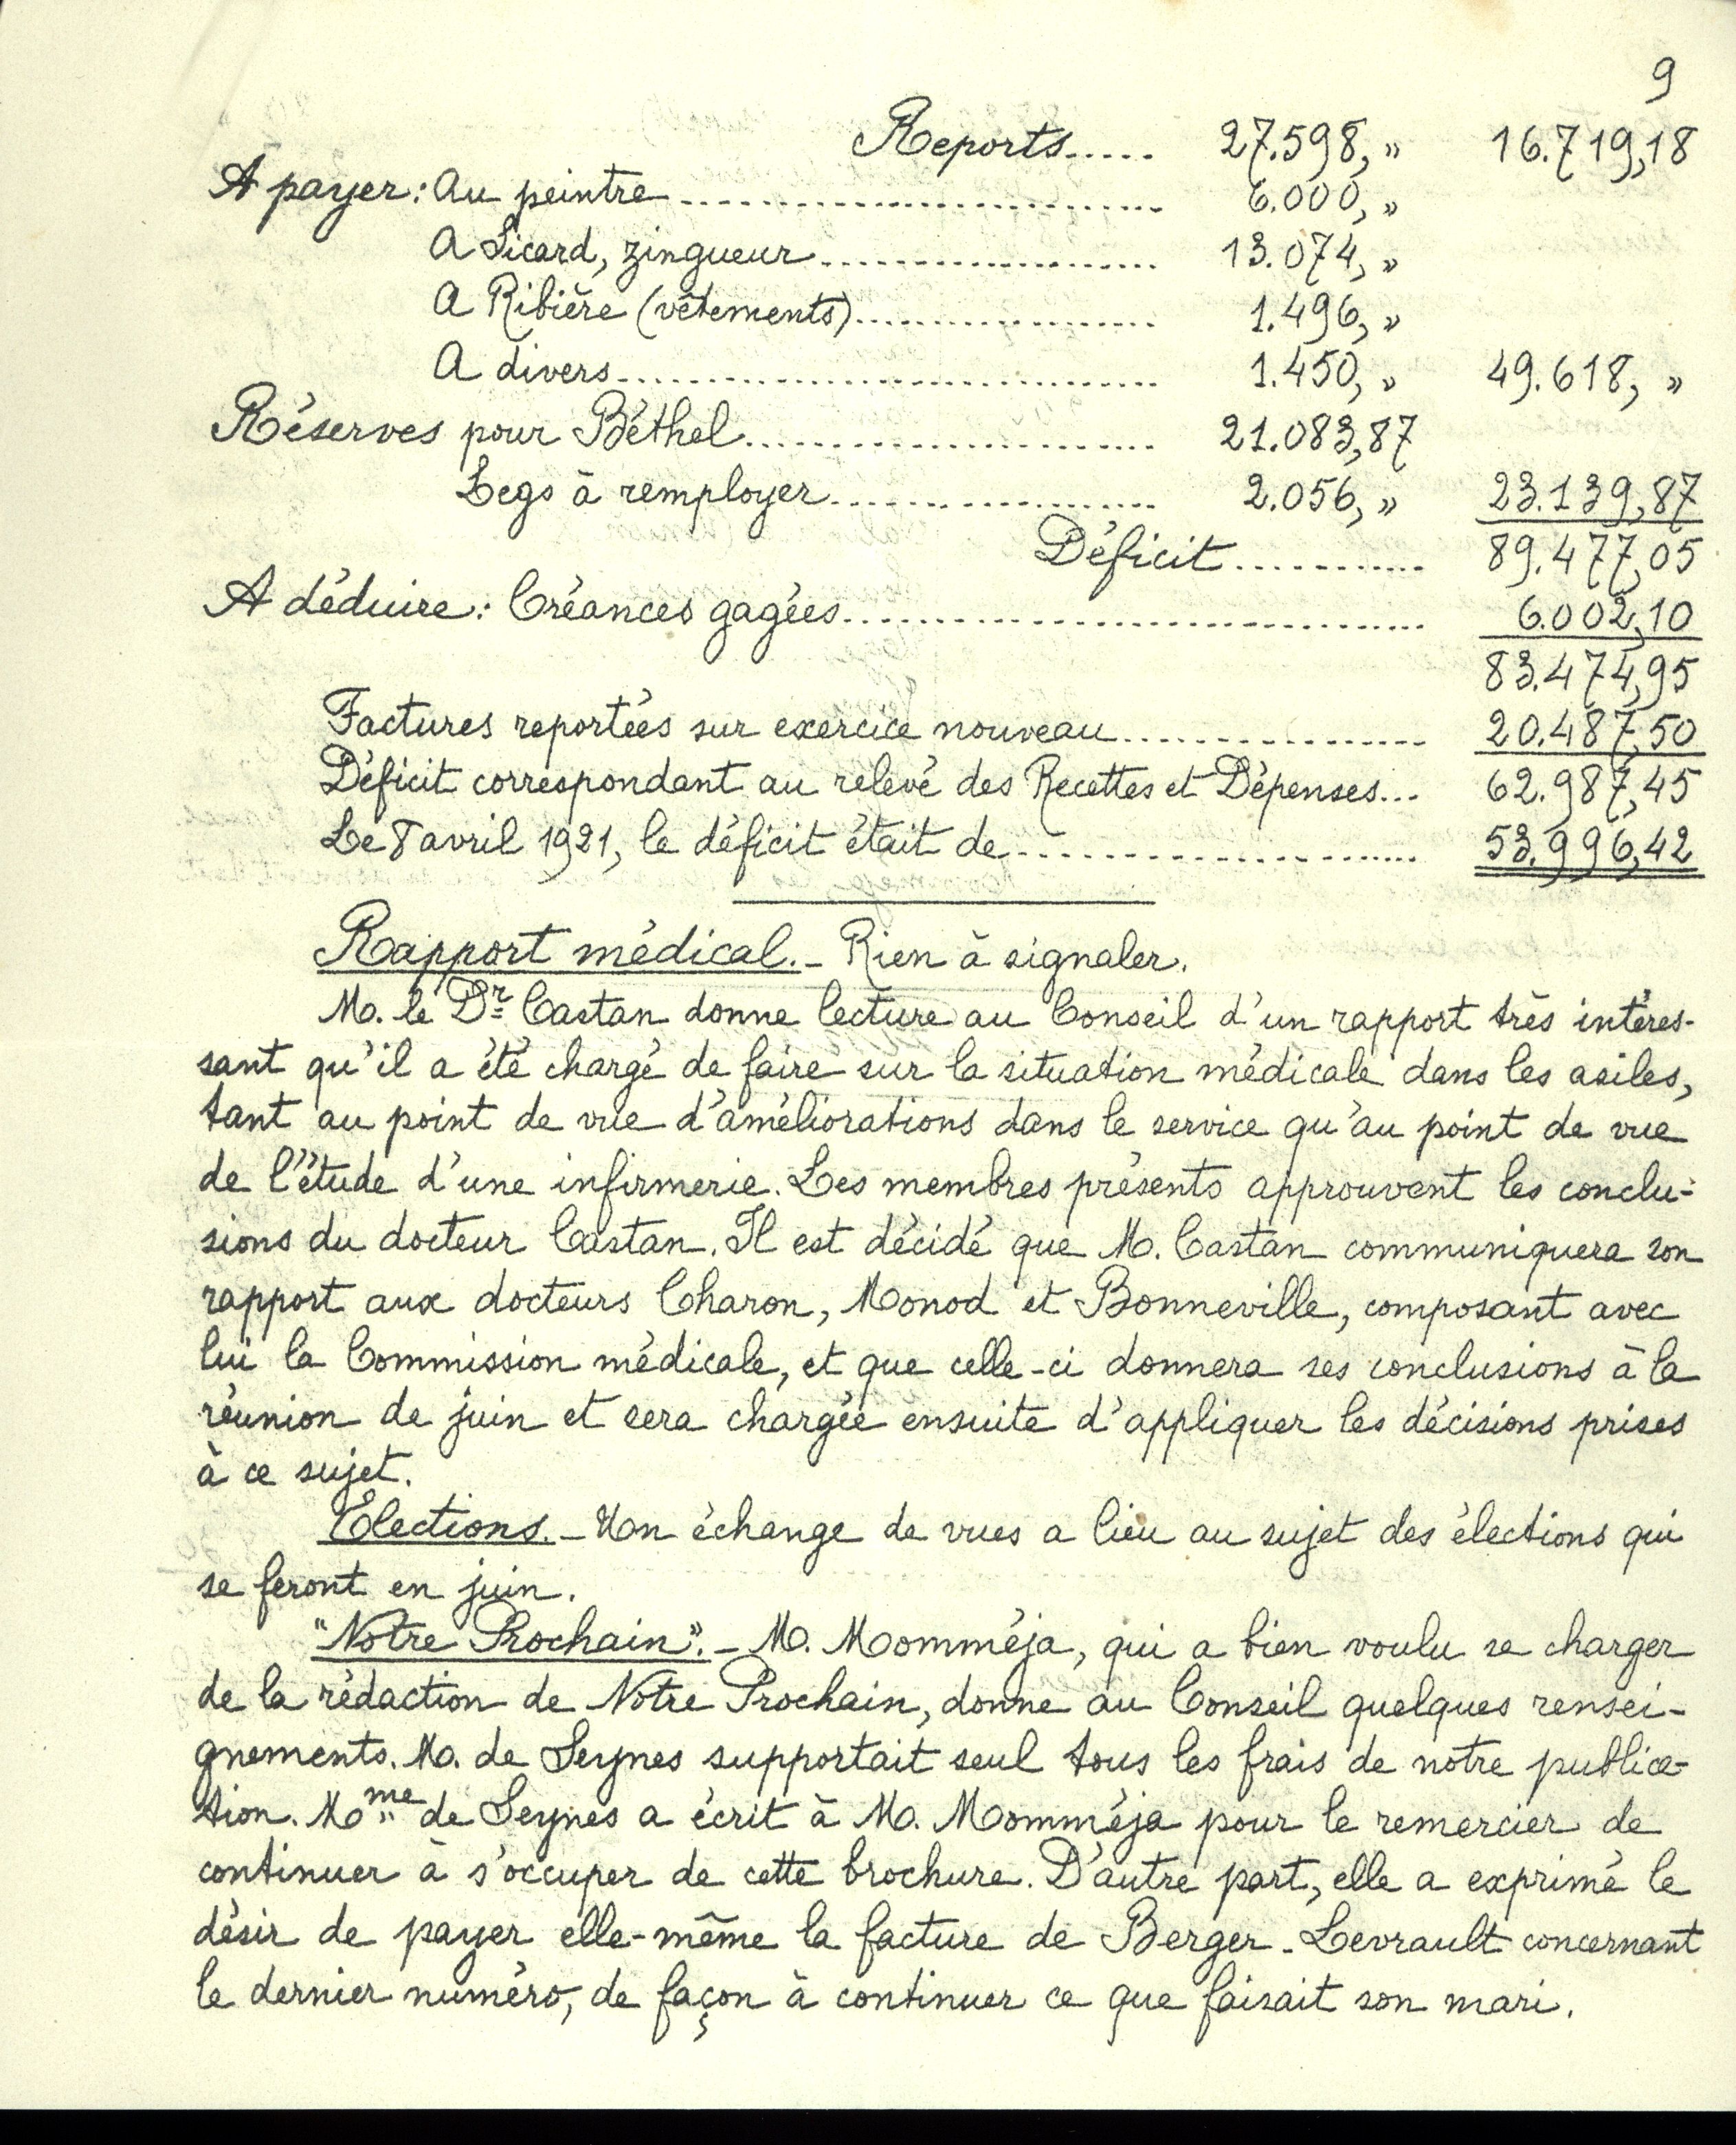 9
Reports..... 27.598, " 16.719,18
A payer: Au peintre............................ 6.000, "
A Sicard, zingueur.................... 13.074, "
A Ribière (vêtements).................. 1.496, "
A divers................................ 1.450, " 49.618, "
Réserves pour Béthel......................... 21.083,87
Legs à remployer.................... 2.056, " 23.139,87
Déficit............ 89.477,05
A déduire: Créances gagées................................... 6.002,10
83.474,95
Factures reportées sur exercice nouveau.................. 20.487,50
Déficit correspondant au relevé des Recettes et Dépenses... 62.987,45
Le 8 avril 1921, le déficit était de......................... 53.996,42
Rapport médical. _ Rien à signaler.
M. le Dr Castan donne lecture au Conseil d'un rapport très intéres-
sant qu'il a été chargé de faire sur la situation médicale dans les asiles,
tant au point de vue d'améliorations dans le service qu'au point de vue
de l'étude d'une infirmerie. Les membres présents approuvent les conclu-
sions du docteur Castan. Il est décidé que M. Castan communiquera son
rapport aux docteurs Charon, Monod et Bonneville, composant avec
lui la Commission médicale, et que celle-ci donnera ses conclusions à la
réunion de juin et sera chargée ensuite d'appliquer les décisions prises
à ce sujet.
Elections. _ Un échange de vues a lieu au sujet des élections qui
se feront en juin.
"Notre Prochain". _ M. Momméja, qui a bien voulu se charger
de la rédaction de Notre Prochain, donne au Conseil quelques rensei-
gnements. M. de Seynes supportait seul tous les frais de notre publica-
tion. Mme de Seynes a écrit à M. Momméja pour le remercier de
continuer à s'occuper de cette brochure. D'autre part, elle a exprimé le
désir de payer elle-même la facture de Berger-Levrault concernant
le dernier numéro, de façon à continuer ce que faisait son mari.